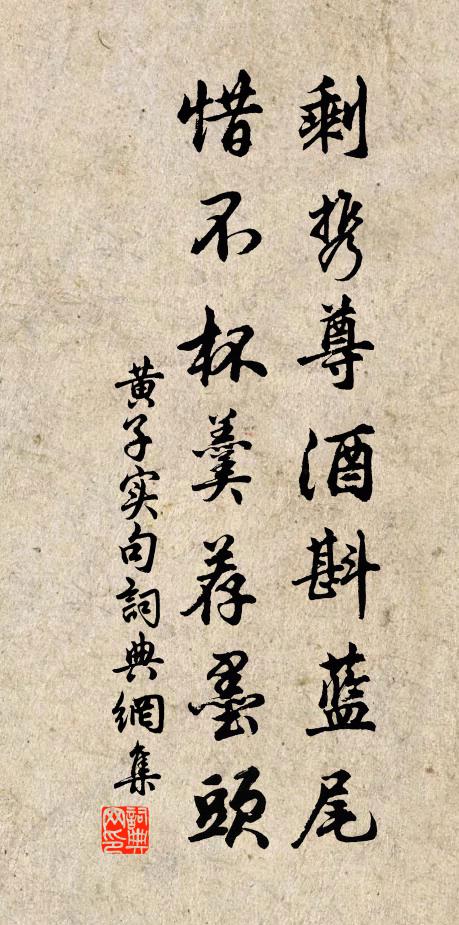 剩携尊酒斟蓝尾
惜不杯羹荐墨頭
黄子实句詞典網集
詞典网印